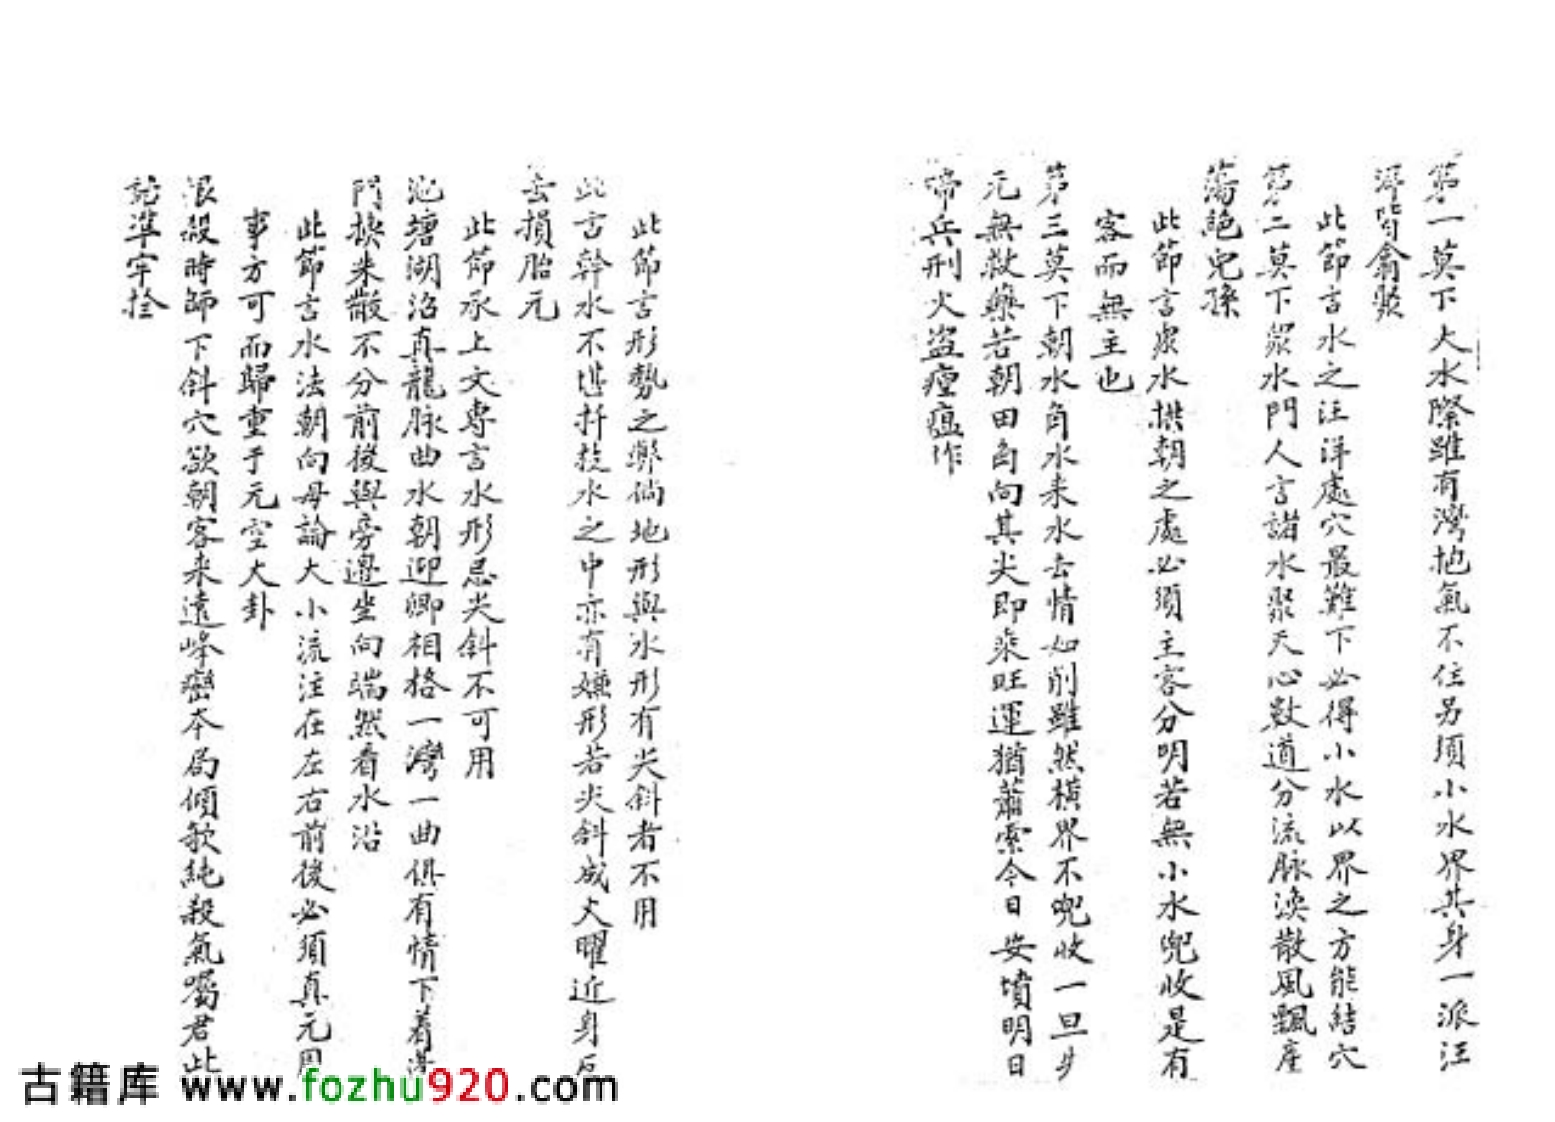 第一莫下大水際雖有灣抱氣不住另須小水界其身一派汪
洋皆翕聚
此節言水之汪洋處穴最難下必得小水以界之方能結穴
第二莫下眾水門人言諸水聚天心數道分流脉渙散風飄産
蕩絕兒孫
此節言衆水拱朝之處必須主客分明若無小水兜收是有
客而無主也
第三莫下朝水角水来水去情如削雖然横界不兜收一旦失
元無救藥若朝田角向其尖即乘旺運猶蕭索今日安墳明日
啼兵刑火盜瘟瘟作
此節言形勢之弊倘地形與水形有尖斜者不用
此言幹水不堪扦枝水之中亦有嫌形若尖斜成火曜近身反
去損胎元
此節承上文專言水形忌尖斜不可用
池塘湖沼真龍脉曲水朝迎卿相格一灣一曲俱有情下着
門挨朱散不分前後與旁邊坐向端然看水沿
此節言水法朝向毋論大小流注在左右前後必須真元
事方可而歸重于元空大卦
浪殺時師下斜穴欲朝客来遠峰巒本局傾欹純殺氣囑君此
訣準牢拴
古籍库 www.fozhu920.com